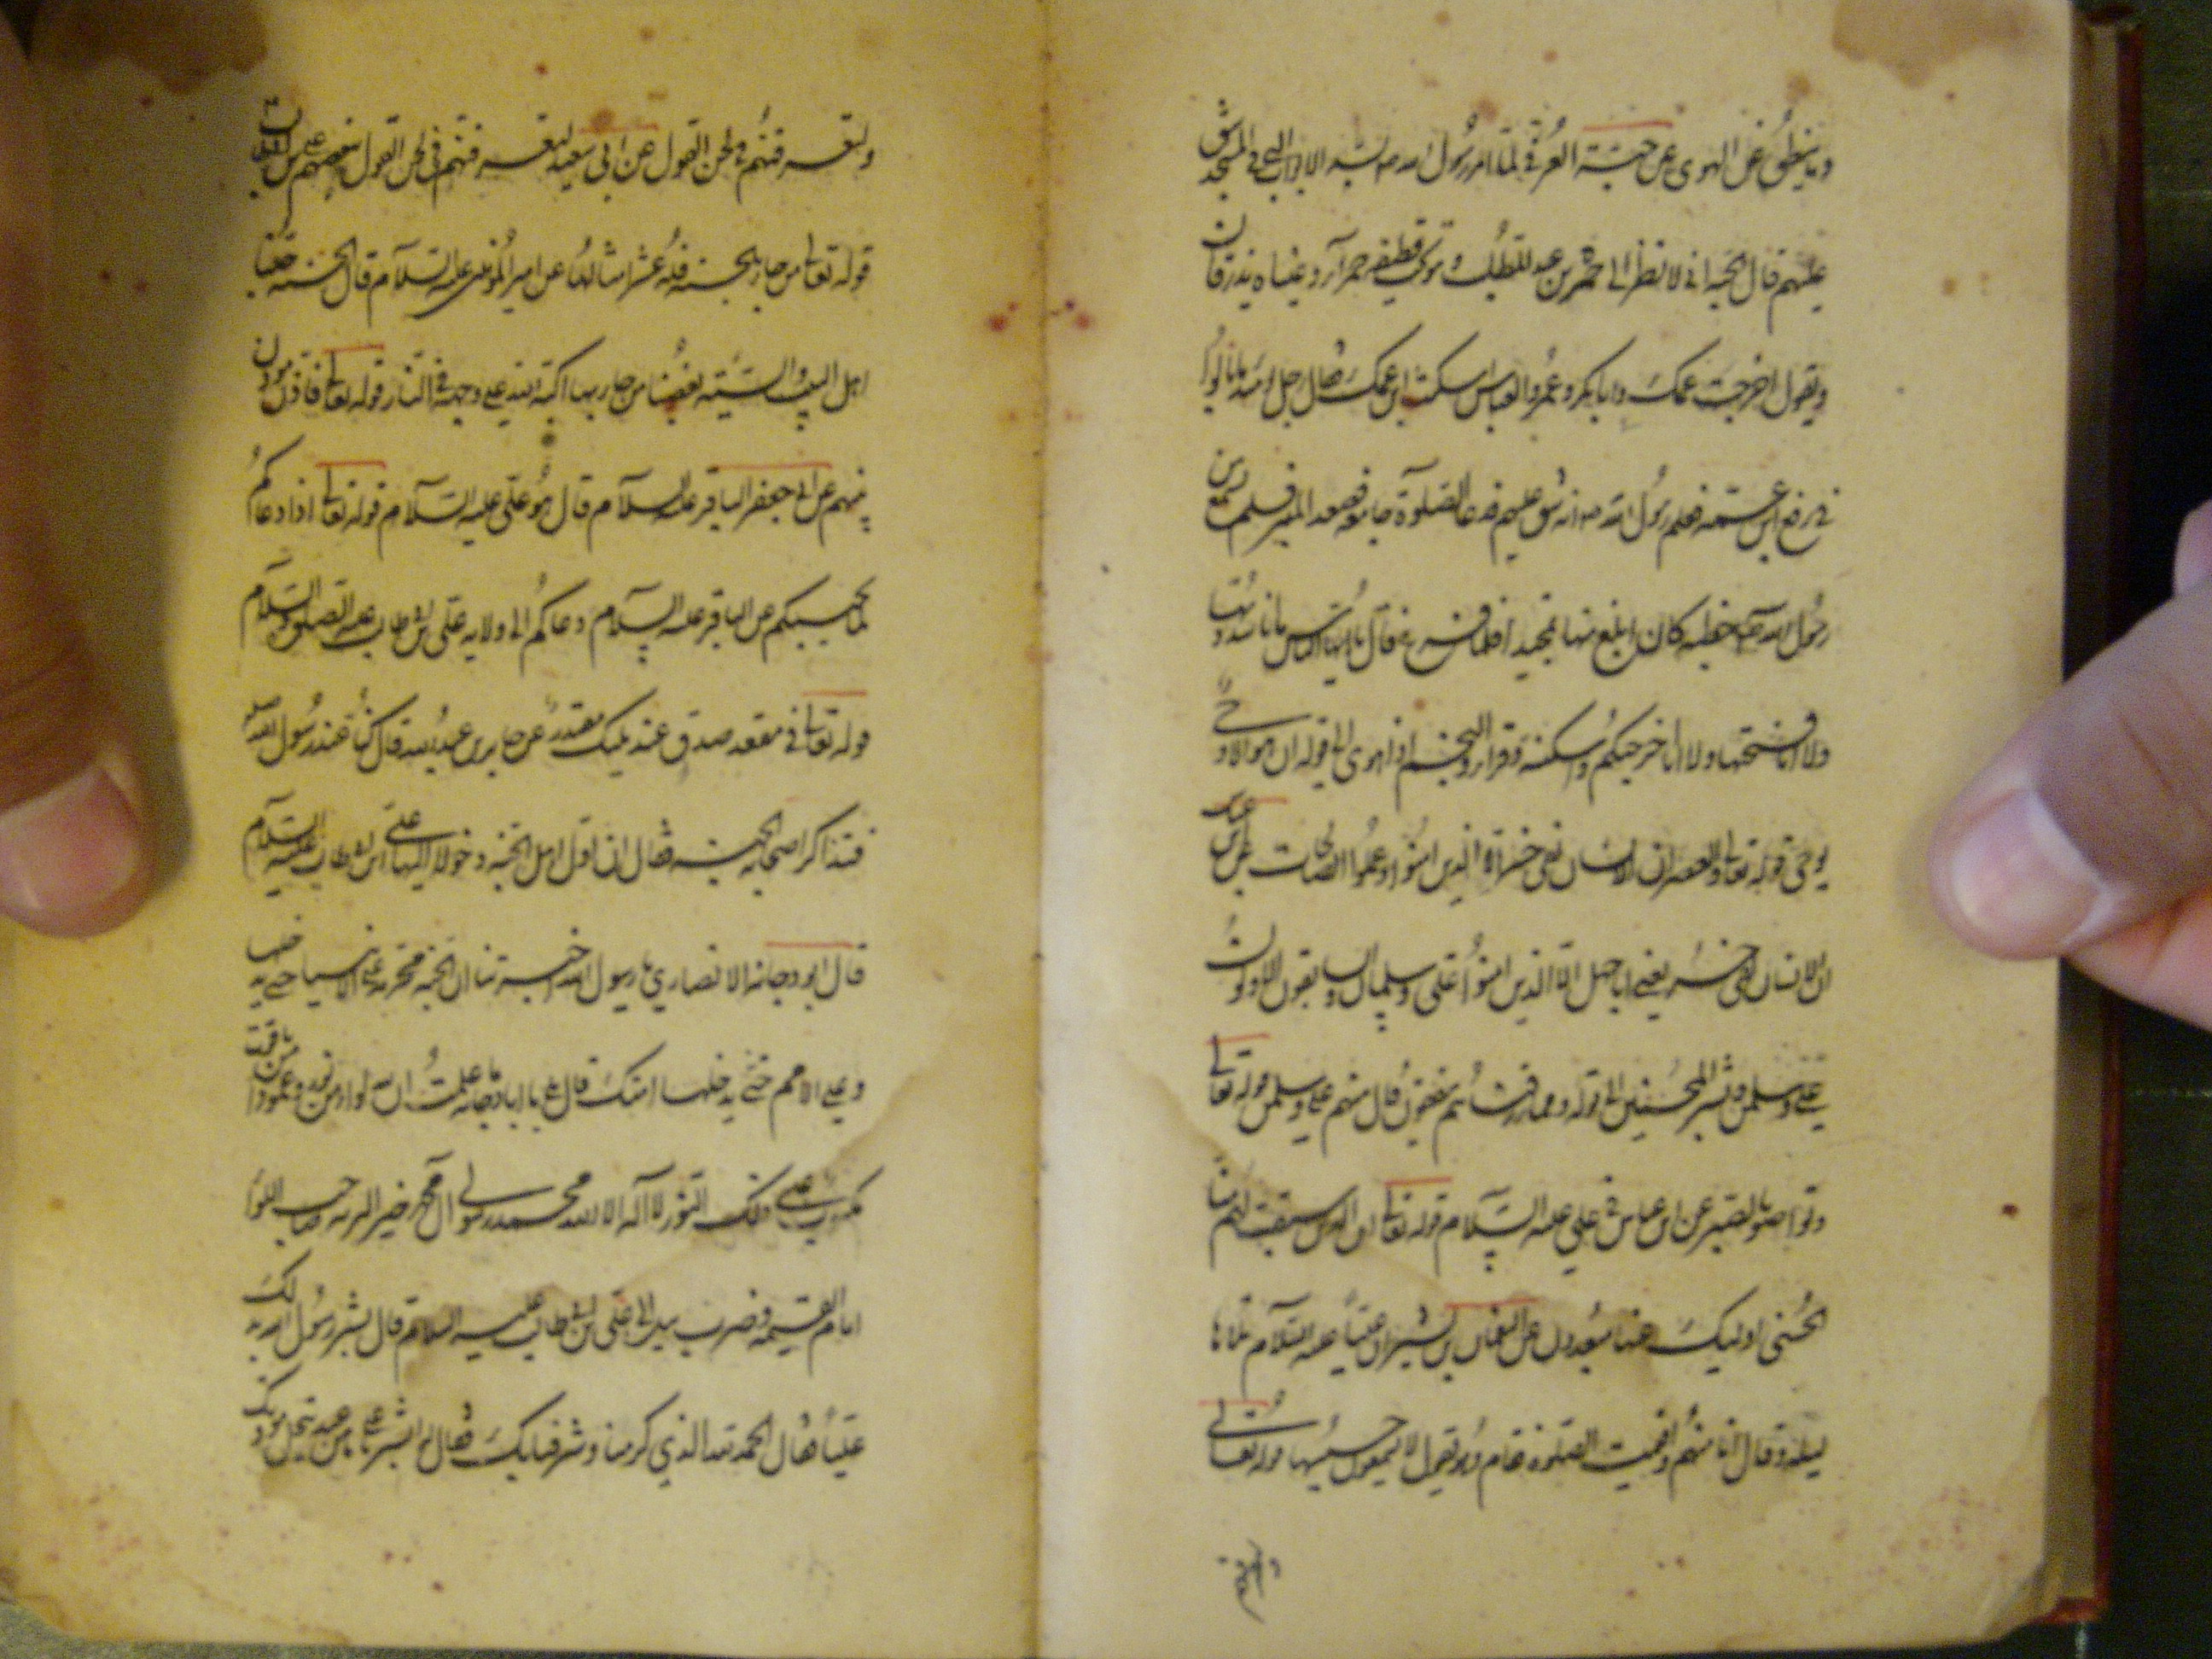 وما ينطق عن الهوى عن حبة العرني لما امر رسول الله ص بسد الابواب التي في المسجد شق
عليهم قال الحبة اني لانظر الى حمزة بن عبد المطلب وهو تحت قطيفة حمرآء وعيناه تذرفان
ويقول اخرجت عمك وابا بكر وعمر والعباس واسكنت ابن عمك فقال رجل
في رفع ابن عمه فعلم رسول الله ص انه شق عليهم فدعا الصلوة جامعة فصعد المنبر فلم يسمع من
رسول الله ص خطبة كان ابلغ منها تمجيدا فلما فرغ قال يا ايها الناس ما انا سددتها
ولا انا فتحتها ولا انا اخرجتكم واسكنته وقرأ والنجم اذا هوى الى قوله ان هو الا وحي
يوحى قوله تعالى والعصر ان الانسان لفي خسر الا الذين امنوا وعملوا الصالحات عن ابن عباس
ان الانسان لفي خسر يعني ابا جهل الا الذين امنوا علي وسلمان والسابقون الاولون
علي وسلمن وبشر المخبتين الى قوله ومما رزقناهم ينفقون قال منهم علي وسلمن قوله تعالى
وتواصوا بالصبر عن ابن عباس في علي عليه السلام قوله تعالى ان الذين سبقت لهم منا
الحسنى اوليك عنها مبعدون عن النعمان بن بشير ان عليا عليه السلام تلاها
ليلة وقال انا منهم واقيمت الصلوة فقام وهو يقول لا يسمعون حسيسها قوله تعالى
ولتعرفنهم في لحن القول عن ابي سعيد لتعرفنهم في لحن القول ببغضهم علي بن
قوله تعالى من جاء بالحسنة فله عشر امثالها عن امير المؤمنين عليه السلام قال الحسنة حبنا
اهل البيت والسيئة بغضنا من جاء بها اكبه الله على وجهه في النار قوله تعالى فاذن موذن
بينهم عن ابي جعفر الباقر عليه السلام قال هو علي عليه السلام قوله تعالى اذا دعاكم
لما يحييكم عن الباقر عليه السلام دعاكم الى ولاية علي بن ابي طالب عليه الصلوة والسلام
قوله تعالى في مقعد صدق عند مليك مقتدر عن جابر بن عبد الله قال كنا عند رسول الله
فتذاكر اصحابه الجنة فقال ان اول اهل الجنة دخولا اليها علي بن ابي طالب عليه السلام
قال ابو دجانة الانصاري يا رسول الله اخبرتنا ان الجنة محرمة على الانبيا حتى تدخلها
وعلى الامم حتى يدخلها امتك قال بلى يا ابا دجانة اما علمت ان لله لواء من نور وعمودا من ياقوت
مكتوب على ذلك النور لا اله الا الله محمد رسولي ال محمد خير البرية صاحب اللواء
امام القيمة وضرب بيده الى علي بن ابي طالب عليه السلام قال فبشر رسول الله بذلك
عليا فقال الحمد لله الذي كرمنا وشرفنا بك فقال له ابشر يا علي ما من عبد ينتحل مودتك